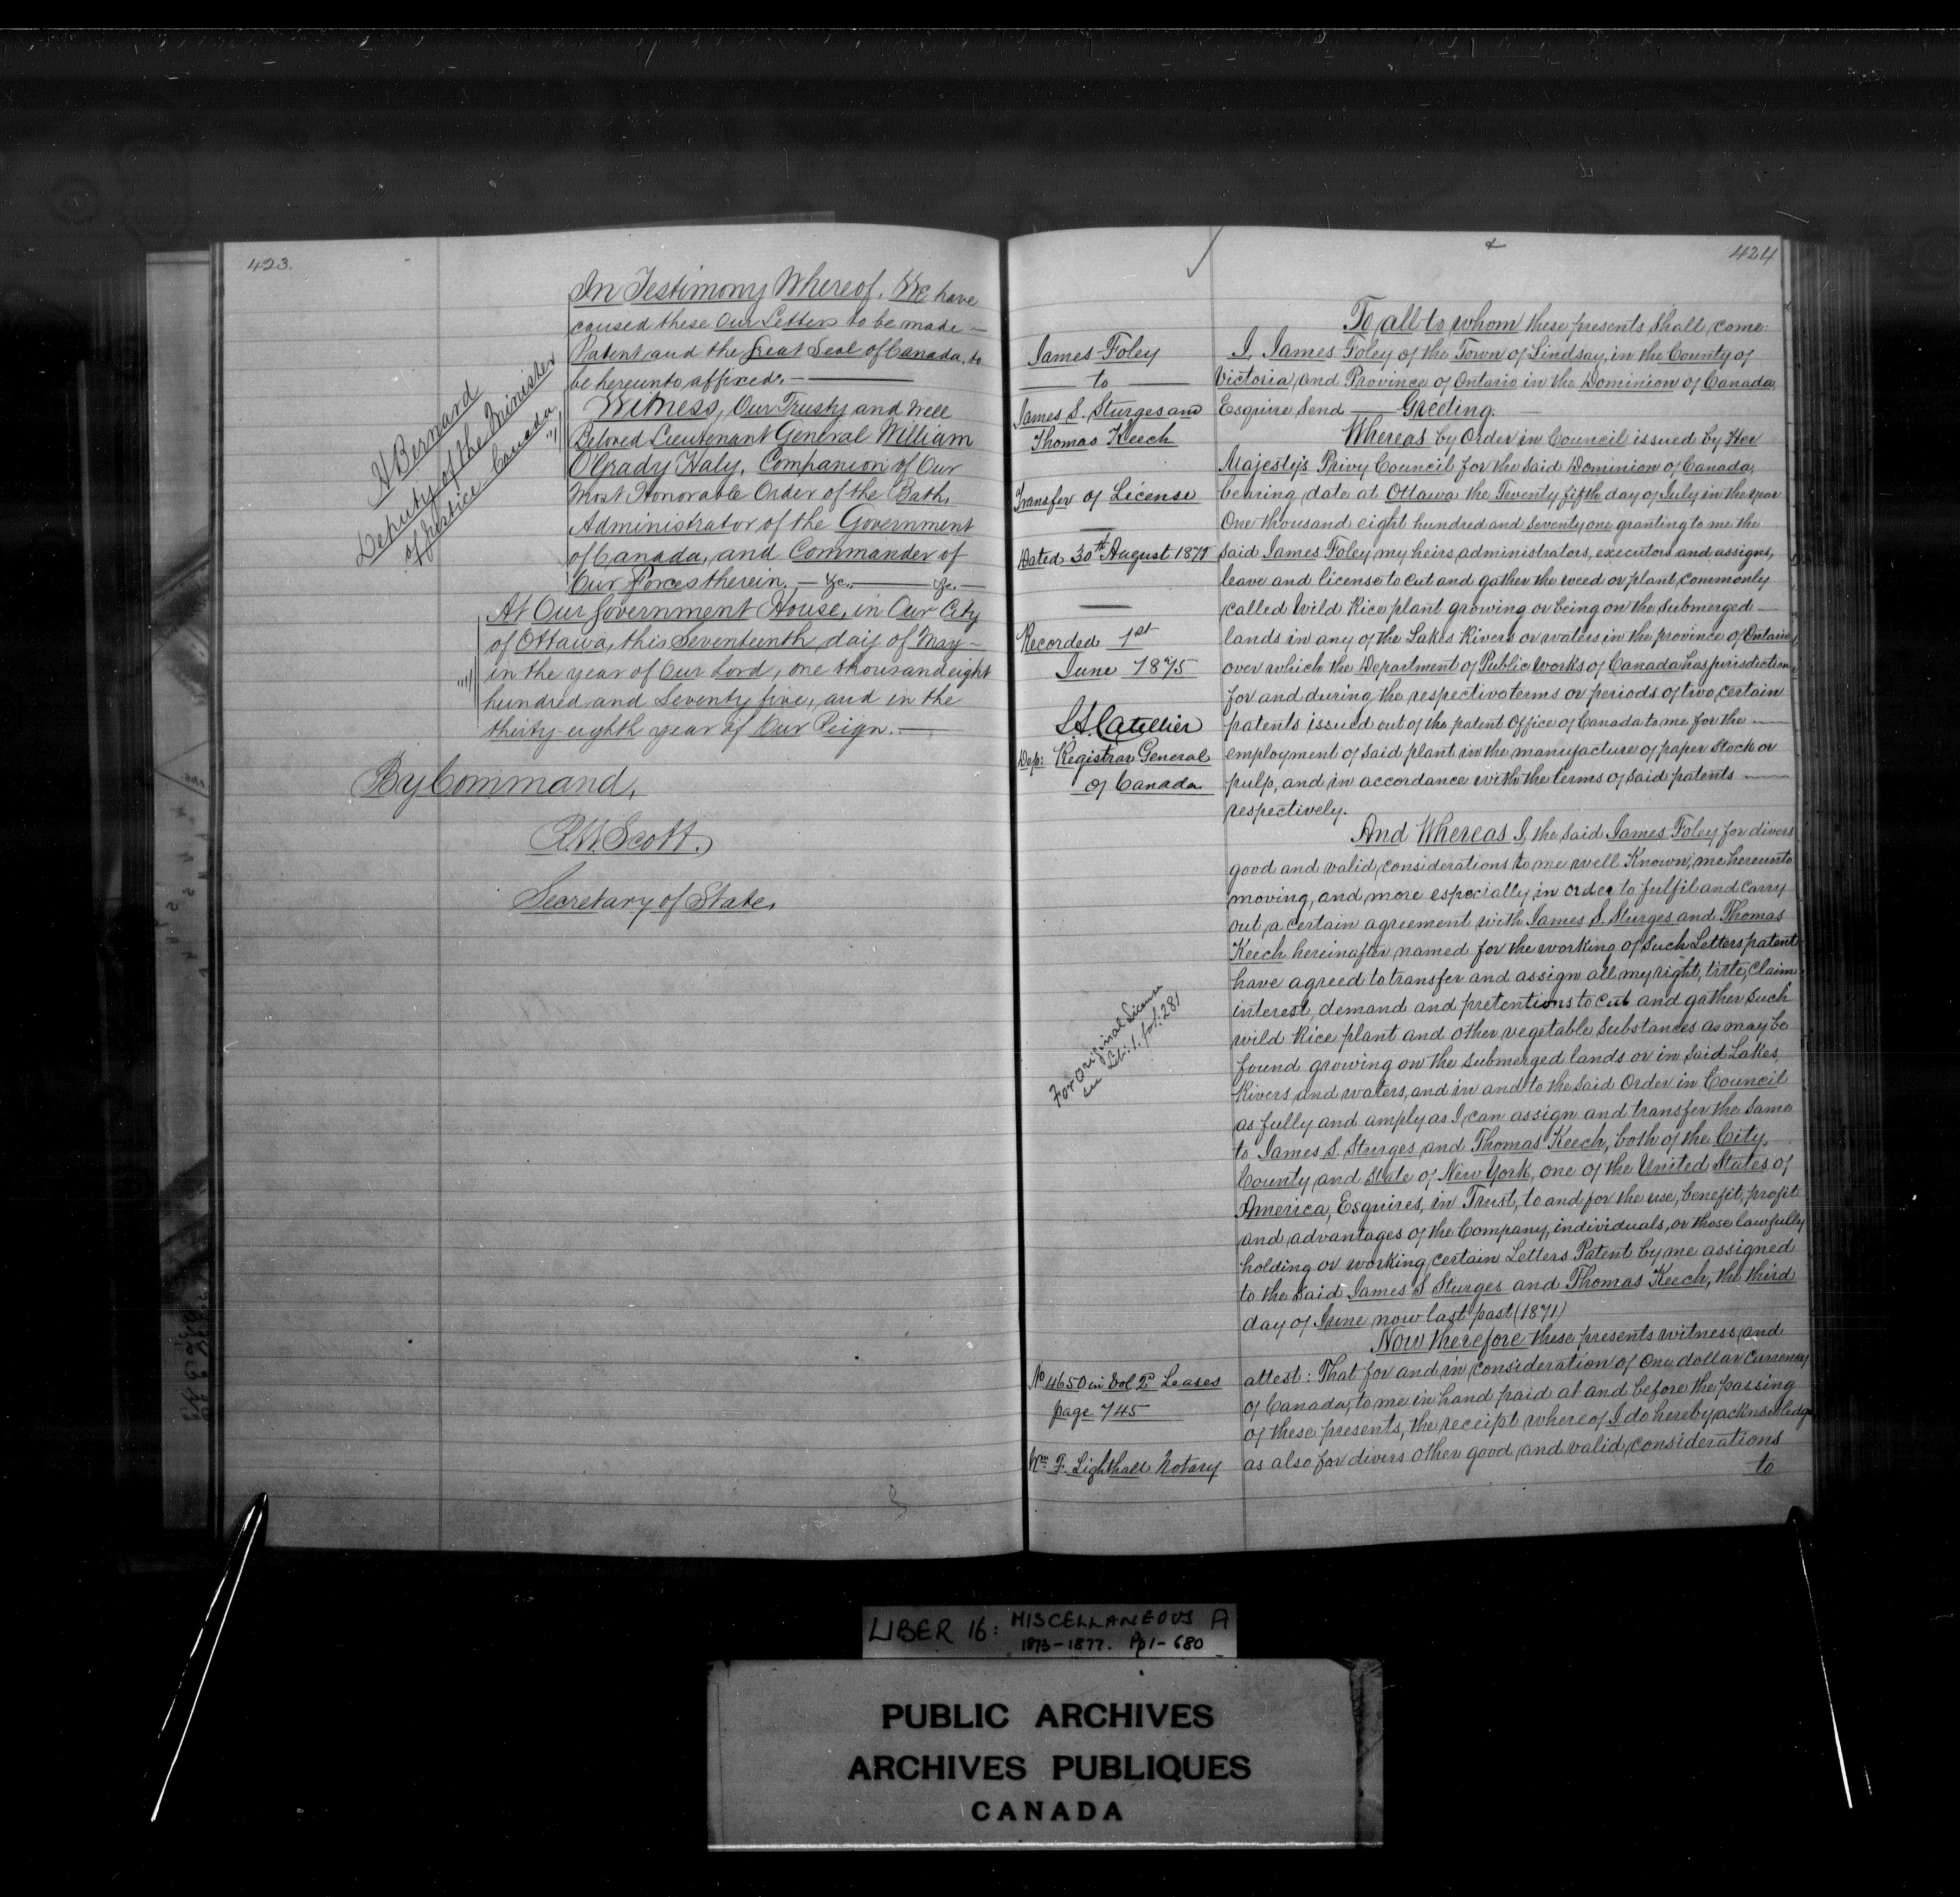 423.
In Testimony Whereof, We have
caused these Our Letters to be made —
Patent and the Great Seal of Canada, to
be hereunto affixed. —
Witness, Our Trusty and Well
Beloved Lieutenant General William
O'Grady Haly, Companion of Our
Most Honorable Order of the Bath,
Administrator of the Government
of Canada, and Commander of
Our Forces therein, — &c. — &c. —
At Our Government House, in Our City
of Ottawa, this Seventeenth day of May —
in the year of Our Lord, one thousand eight
hundred and Seventy five, and in the
thirty eighth year of Our Reign. —
H Bernard
Deputy of the Minister
of Justice Canada
By Command,
R.W. Scott.
Secretary of State.
424
James Foley
— to —
James S. Sturges and
Thomas Keech
Transfer of License
Dated 30th August 1871
Recorded 1st
June 1875
L.A. Catellier
Dep: Registrar General
of Canada
For Original License
in Lib: 1. fol: 281
No 4650 in Vol Leases
page 745
Wm F. Lighthall Notary
To all to whom these presents shall come:
I, James Foley of the Town of Lindsay, in the County of
Victoria, and Province of Ontario in the Dominion of Canada,
Esquire Send — Greeting.
Whereas by Order in Council issued by Her
Majesty's Privy Council for the said Dominion of Canada,
bearing date at Ottawa the Twenty fifth day of July in the year
One thousand eight hundred and seventy one granting to me the
said James Foley, my heirs, administrators, executors and assigns,
leave and license to cut and gather the weed or plant commonly
called Wild Rice plant growing or being on the submerged —
lands in any of the Lakes Rivers or waters in the province of Ontario
over which the Department of Public Works of Canada has jurisdiction
for and during the respective terms or periods of two, certain
patents issued out of the patent Office of Canada to me for the —
employment of said plant in the manufacture of paper stock or
pulp, and in accordance with the terms of said patents —
respectively.
And Whereas I, the said James Foley for divers
good and valid, considerations to me well Known, me hereunto
moving, and more especially in order to fulfil and carry
out a certain agreement with James S. Sturges and Thomas
Keech hereinafter named for the working of such Letters patent
have agreed to transfer and assign all my right, title, claim
interest, demand and pretentions to cut and gather such
wild Rice plant and other vegetable substances as may be
found growing on the submerged lands or in said Lakes,
Rivers and waters, and in and to the said Order in Council
as fully and amply as I can assign and transfer the same
to James S. Sturges and Thomas Keech, both of the City,
County and State of New York, one of the United States of
America, Esquires, in Trust, to and for the use, benefit, profit
and advantages of the Company, individuals, or those lawfully
holding or working certain Letters Patent by me assigned
to the said James S Sturges and Thomas Keech, the third
day of June now last past (1871)
Now therefore these presents witness and
attest: That for and in consideration of one dollar currency
of Canada, to me in hand paid at and before the passing
of these presents, the receipt whereof I do hereby acknowledge
as also for divers other good and valid considerations
to
LIBER 16: MISCELLANEOUS A
1873-1877. Pp 1-680
PUBLIC ARCHIVES
ARCHIVES PUBLIQUES
CANADA